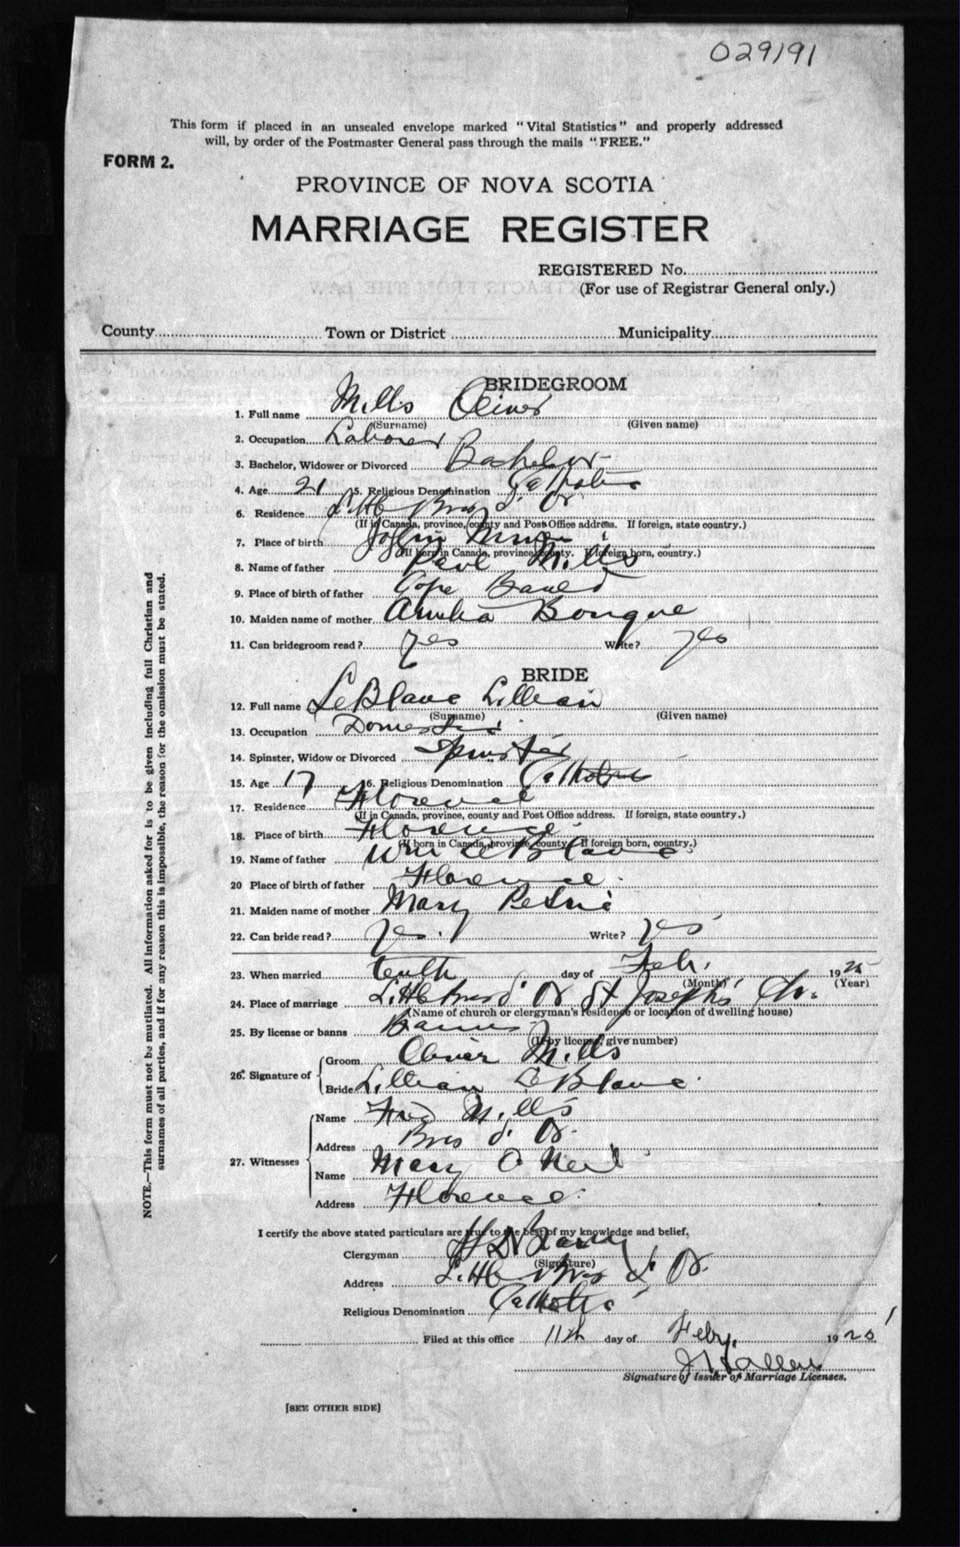 029191
This form if placed in an unsealed envelope marked "Vital Statistics" and properly addressed
will, by order of the Postmaster General pass through the mails "FREE."
FORM 2.
PROVINCE OF NOVA SCOTIA
MARRIAGE REGISTER
REGISTERED No.
(For use of Registrar General only.)
County Town or District Municipality
BRIDEGROOM
1. Full name Mills Oliver
(Surname) (Given name)
2. Occupation Laborer
3. Bachelor, Widower or Divorced Bachelor
4. Age 21 5. Religious Denomination Catholic
6. Residence Little Bras d' Or
(If in Canada, province, county and Post Office address. If foreign, state country.)
7. Place of birth Joggin Mines
(If born in Canada, province, county. If foreign born, country.)
8. Name of father Paul Mills
9. Place of birth of father Cape
10. Maiden name of mother
11. Can bridegroom read? Yes Write? yes
BRIDE
12. Full name LeBlanc Lillian
(Surname) (Given name)
13. Occupation Domestic
14. Spinster, Widow or Divorced Spinster
15. Age 17 16. Religious Denomination Catholic
17. Residence Florence
(If in Canada, province, county and Post Office address. If foreign, state country.)
18. Place of birth Florence
(If born in Canada, province, county. If foreign born, country.)
19. Name of father Wm LeBlanc
20 Place of birth of father Florence
21. Maiden name of mother Mary Petrie
22. Can bride read? Yes Write? Yes
23. When married tenth day of Feb. 1925
(Month) (Year)
24. Place of marriage Little Bras d' Or St Joseph's Ch.
(Name of church or clergyman's residence or location of dwelling house)
25. By license or banns Banns
(If by license, give number)
26. Signature of Groom Oliver Mills
Bride Lillian LeBlanc
27. Witnesses
Name Fred Mills
Address Bras d' Or
Name Mary O'Neil
Address Florence
I certify the above stated particulars are true to the best of my knowledge and belief,
Clergyman
(Signature)
Address Little Bras d' Or
Religious Denomination Catholic
Filed at this office 11th day of Feby. 1925
Signature of Issuer of Marriage Licenses.
[SEE OTHER SIDE]
NOTE.—This form must not be mutilated. All information asked for is to be given including full Christian and
surnames of all parties, and if for any reason this is impossible, the reason for the omission must be stated.